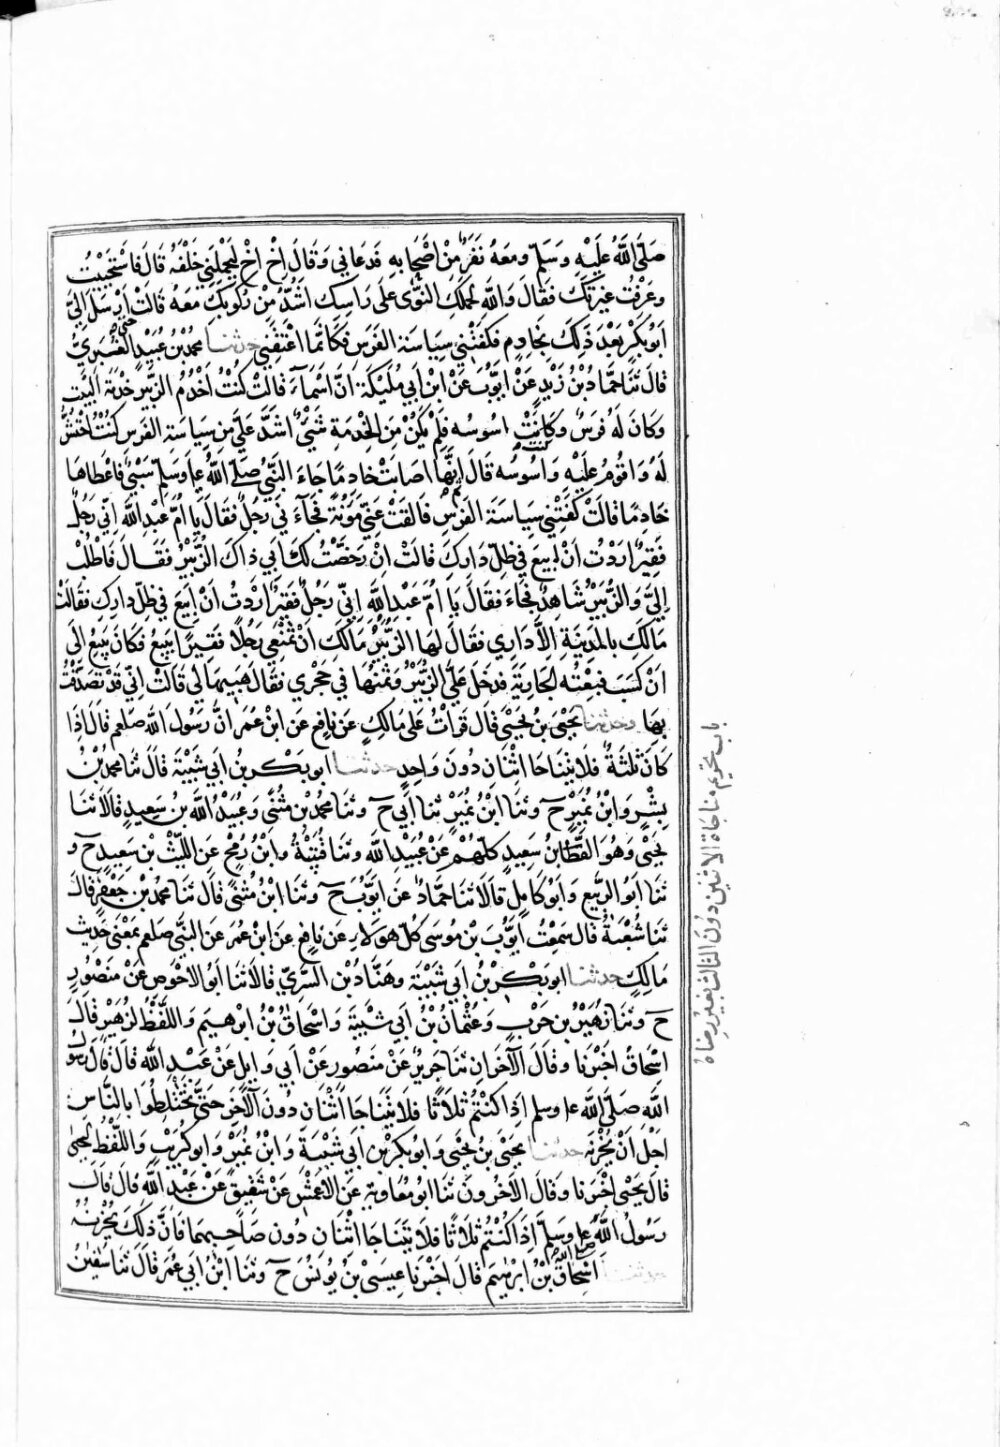 صَلَّى اللَّهُ عَلَيْهِ وَسَلَّمَ وَمَعَهُ نَفَرٌ مِنْ أَصْحَابِهِ فَدَعَانِي وَقَالَ إِخْ إِخْ لِيَحْمِلَنِي خَلْفَهُ قَالَ فَاسْتَحْيَيْتُ
وَعَرَفْتُ غَيْرَتَكَ فَقَالَ وَاللَّهِ لَحَمْلُكِ النَّوَى عَلَى رَاسِكِ أَشَدُّ مِنْ رُكُوبِكِ مَعَهُ قَالَتْ أَرْسَلَ إِلَيَّ
أَبُو بَكْرٍ بَعْدَ ذَلِكَ بِخَادِمٍ فَكَفَتْنِي سِيَاسَةَ الفَرَسِ فَكَأَنَّمَا أَعْتَقَنِي حدثنا محمد بْنُ عُبَيْدٍ الْغُبَرِيُّ
قَالَ ثَنَا حَمَّادُ بْنُ زَيْدٍ عَنْ أَيُّوبَ عَنِ ابْنِ أَبِي مُلَيْكَةَ أَنَّ أَسْمَاءَ قَالَتْ كُنْتُ أَخْدُمُ الزُّبَيْرَ خِدْمَةَ البَيْتِ
وَكَانَ لَهُ فَرَسٌ وَكَانَتْ اسُوسُه فَلَمْ يَكُنْ مِنَ الْخِدْمَةِ شَيْءٌ أَشَدَّ عَلَيَّ مِن سِيَاسَةِ الفَرَسِ كُنْتُ أَحْتَشُّ
لَهُ وَاقُومُ عَلَيْهِ وَاسُوسُه قَالَ إِنَّهَا اصَابَتْ خَادِمًا جَاءَ النَّبِيَّ صَلَّى اللَّهُ ع‍ وَسَلَّم سَبْيٌ فَاعْطَاهَا
خَادِمًا قَالَتْ كَفَتْنِي سِيَاسَةَ الفَرَسِ فَالْقَتْ عَنِّي مَؤُنَةً فَجَآءَنِي رَجُلٌ فَقَالَ يَا أُمَّ عَبْدِ اللَّهِ إِنِّي رَجُلٌ
فَقِيرٌ أَرَدْتُ أَنْ أَبِيعَ فِي ظِلِّ دَارِكِ قَالَتْ إِنْ رَخَّصْتُ لَكَ أَبَى ذَاكَ الزُّبَيْرُ فَقَالَ فَاطْلُبْ
إِلَيَّ وَالزُّبَيْرُ شَاهِدٌ فَجَاءَ فَقَالَ يَا أُمَّ عَبْدِ اللَّهِ إِنِّي رَجُلٌ فَقِيرٌ أَرَدْتُ أَنْ أَبِيعَ فِي ظِلِّ دَارِكِ فَقَالَتْ
مَالَكَ بِالْمَدِينَةِ إِلَّا دَارِي فَقَالَ لَهَا الزُّبَيْرُ مَالَكِ أَنْ تَمْنَعِي رَجُلًا فَقِيرًا يَبِيعُ فَكَانَ يَبِيعُ إِلَى
أَنْ كَسَبَ فَبِعْتُه الجَارِيَةَ فَدَخَلَ عَلَيَّ الزُّبَيْرُ وَثَمَنُهَا فِي حَجْرِي فَقَالَ هَبِيهَا لِي قَالَتْ إِنِّي قَدْ تَصَدَّقْتُ
بِهَا وحدثنا يَحْيَى بْنُ يَحْيَى قَالَ قَرَأْتُ عَلَى مَالِكٍ عَنْ نَافِعٍ عَنِ ابْنِ عُمَرَ انَّ رَسُولَ اللَّهِ صلعم قَالَ إِذَا
كَانَ ثَلَثَةٌ فَلَا يَتَنَاجَا اثْنَانِ دُونَ وَاحِدٍ حدثنا ابو بَكْرِ بْنُ أَبِي شَيْبَةَ قَالَ ثَنَا محمد بْنُ
بِشْرٍ وَابْنُ نُمَيْرٍ ح وثَنَا ابْنُ نُمَيْرٍ ثنا أَبِي ح وثَنَا محمد بْنُ مُثَنَّى وَعُبَيْدُ اللَّهِ بْنُ سَعِيدٍ قَالَا ثَنَا
يَحْيَى وَهُوَ القَطَّانُ ابنُ سَعِيدٍ كلّهُمْ عَنْ عُبَيْدِ اللَّهِ وثَنَا قُتَيْبَةُ وابْنُ رُمْحٍ عَنِ اللَّيْثِ بْنِ سَعِيدٍ ح و
ثَنَا أَبُو الرَّبِيعِ وَأَبُو كَامِلٍ قَالَا ثَنَا حَمَّادٌ عَن أَيُّوبَ ح وثَنَا ابْنُ مُثَنَّى قَالَ ثَنَا محمد بْنُ جَعْفَرٍ قَالَ
ثَنَا شُعْبَةُ قَالَ سَمِعْتُ أَيُّوبَ بْنَ مُوسَى كُلُّ هَؤُلَاءِ عَنْ نَافِعٍ عَنِ ابْنِ عُمَرَ عَنِ النَّبِيِّ صلعم بِمَعْنَى حَدِيثِ
مَالِكٍ حدثنا ابو بَكْرِ بْنُ أَبِي شَيْبَةَ وهَنَّادُ بْنُ السَّرِيِّ قَالَا ثَنَا أَبُو الاحْوَصِ عَنْ مَنْصُورٍ
ح وثَنَا زُهَيْرُ بْنُ حَرْبٍ وَعُثْمَانُ بْنُ أَبِي شَيْبَةَ وَاسْحَاقُ بْنُ ابرهِيمَ وَاللَّفْظُ لِزُهَيْرٍ قَالَ
اسْحَاقُ اخْبَرَنَا وقَالَ الآخَرَانِ ثَنَا جَرِيرٌ عَنْ مَنْصُورٍ عَنْ أَبِي وَايِلٍ عَنْ عَبْدِ اللَّهِ قَالَ قَالَ رَسُولُ
اللَّهِ صَلَّى اللَّهُ ع‍ وسلم إِذَا كُنْتُمْ ثَلَاثًا فَلَا يَتَنَاجَا اثْنَانِ دُونَ الآخَرِ حَتَّى تَخْتَلِطُوا بِالنَّاسِ
اجْلَ أَنْ يُحْزِنَه حدثنا يَحْيَى بْنُ يَحْيَى وَابُو بَكْرِ بْنُ أَبِي شَيْبَةَ وَابْنُ نُمَيْرٍ وَابو كُرَيْبٍ وَاللَّفْظُ لِيَحْيَى
قَالَ يَحْيَى اخْبَرَنَا وقَالَ الآخَرُونَ ثَنَا ابُو مُعَاوِيَةَ عَنِ الاعْمَشِ عَنْ شَقِيقٍ عَنْ عَبْدِ اللَّهِ قَالَ قَالَ
رَسُولُ اللَّهِ ع‍ وَسَلَّمَ إِذَا كُنْتُمْ ثَلَاثًا فَلَا يَتَنَاجَا اثْنَانِ دُونَ صَاحِبِهِمَا فَإِنَّ ذَلِكَ يُحْزِنُهُ
حدثنا اسْحَاقُ بْنُ ابرهِيمَ قَالَ اخْبَرَنَا عِيسَى بْنُ يُونُسَ ح وثَنَا ابْنُ أَبِي عُمَرَ قَالَ ثَنَا سُفْيٰنُ
باب تحريم مناجاة الاثنين دون الثالث بغير رضاه